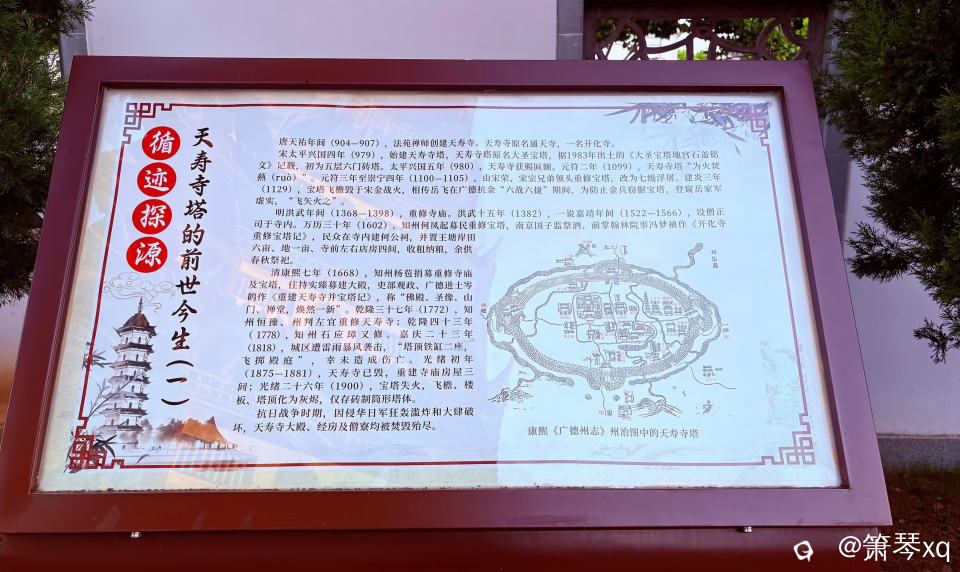 循迹探源
天寿寺塔的前世今生（一）
唐天祐年间（904—907），法苑禅师创建天寿寺。天寿寺原名通天寺，一名开化寺。
宋太平兴国四年（979），始建天寿寺塔，天寿寺塔原名大圣宝塔，据1983年出土的《大圣宝塔地宫石盖铭
文》记载，初为五层六门砖塔。太平兴国五年（980），天寿寺获赐匾额。元符二年（1099），天寿寺塔“为火焚
爇（ruò）”。元符三年至崇宁四年（1100—1105），由宋荣、宋宗兄弟领头重修宝塔，改为七级浮屠。建炎三年
（1129），宝塔飞檐毁于宋金战火，相传岳飞在广德抗金“六战六捷”期间，为防止金兵窃据宝塔，登窥岳家军
虚实，“飞矢火之”。
明洪武年间（1368—1398），重修寺庙。洪武十五年（1382），一说嘉靖年间（1522—1566），设僧正
司于寺内。万历三十年（1602），知州何凤起募民重修宝塔，南京国子监祭酒、前掌翰林院事冯梦祯作《开化寺
重修宝塔记》，民众在寺内建何公祠，并置王塘岸田
六亩、地一亩、寺前左右店房四间，收租纳粮，余供
春秋祭祀。
清康熙七年（1668），知州杨苞捐募重修寺庙
及宝塔，住持实臻募建大殿，吏部观政、广德进士岑
鹤作《重建天寿寺并宝塔记》，称“佛殿、圣像、山
门、禅堂，焕然一新”。乾隆三十七年（1772），知
州恒豫、州判左宜重修天寿寺；乾隆四十三年
（1778），知州石应璋又修。嘉庆二十三年
（1818），城区遭雷雨暴风袭击，“塔顶铁缸二座，
飞掷殿庭”，幸未造成伤亡。光绪初年
（1875—1881），天寿寺已毁，重建寺庙房屋三
间；光绪二十六年（1900），宝塔失火，飞檐、楼
板、塔顶化为灰烬，仅存砖制筒形塔体。
抗日战争时期，因侵华日军狂轰滥炸和大肆破
坏，天寿寺大殿、经房及僧寮均被焚毁殆尽。
康熙《广德州志》州治图中的天寿寺塔
@箫琴xq